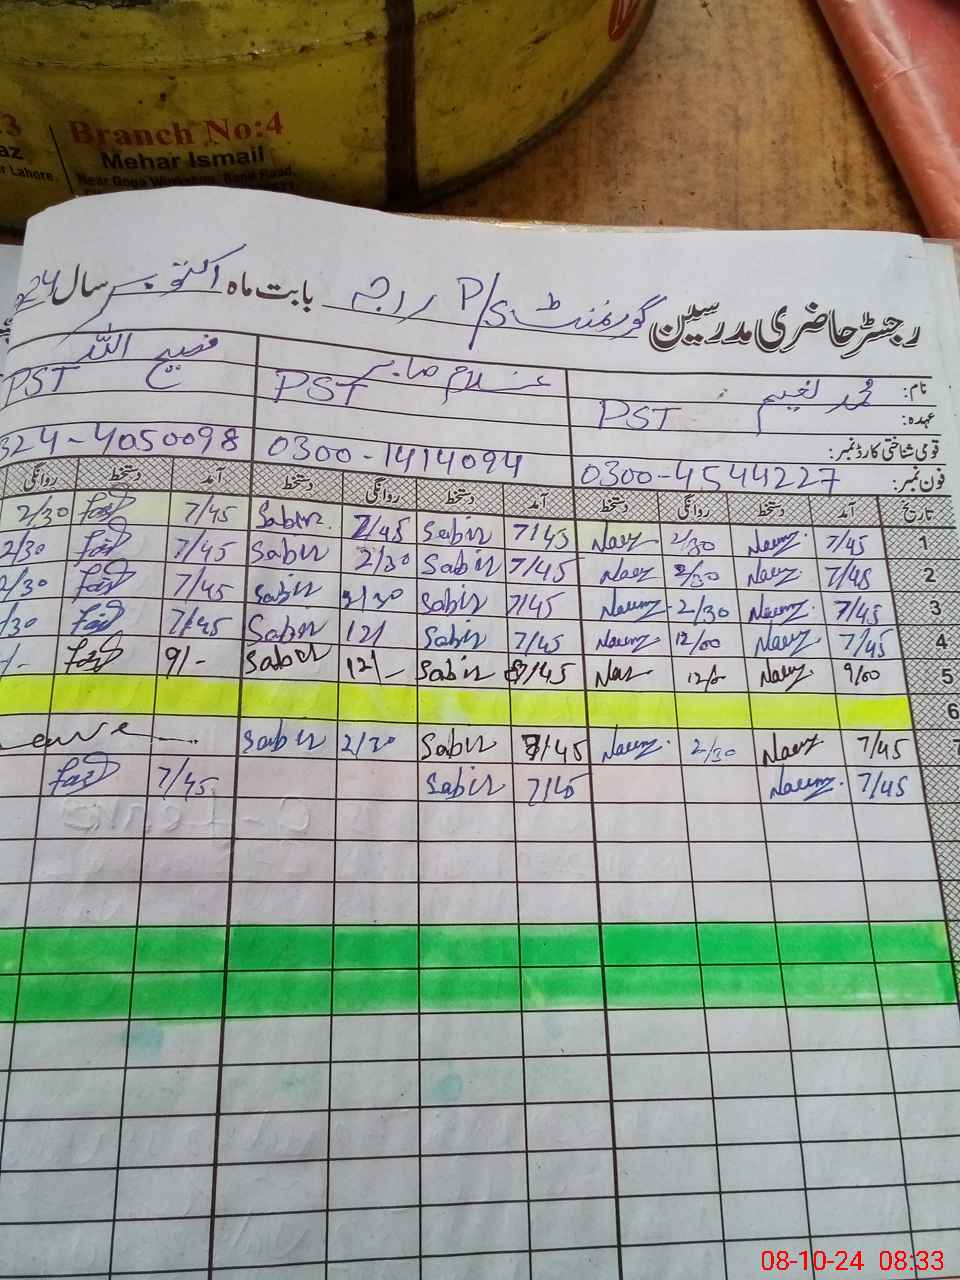 Branch No:4
Mehar Ismail
az
r Lahore.
رجسٹر حاضری مدرسین گورنمنٹ P/S راجہ بابت ماہ اکتوبر سال 24
نام: محمد نعیم غلام صابر فصیح اللہ
عہدہ: PST PST PST
قومی شناختی کارڈ نمبر:
فون نمبر: 0300-4544227 0300-1414094 324-4050098
تاریخ آمد دستخط روانگی دستخط آمد دستخط روانگی دستخط آمد دستخط روانگی
1 7/45 Naeem 2/30 Naeem 7/45 Sabir 7/45 Sabir 7/45 2/30
2 7/45 Naeem 2/30 Naeem 7/45 Sabir 2/30 Sabir 7/45 2/30
3 7/45 Naeem 2/30 Naeem 7/45 Sabir 2/30 Sabir 7/45 2/30
4 7/45 Naeem 12/00 Naeem 7/45 Sabir 12/ Sabir 7/45 /30
5 9/00 Naeem Naeem 7/45 Sabir 12/- Sabir 9/- /-
6
7 7/45 Naeem 2/30 Naeem 7/45 Sabir 2/30 Sabir eave
7/45 Naeem 7/45 Sabir 7/45
08-10-24 08:33